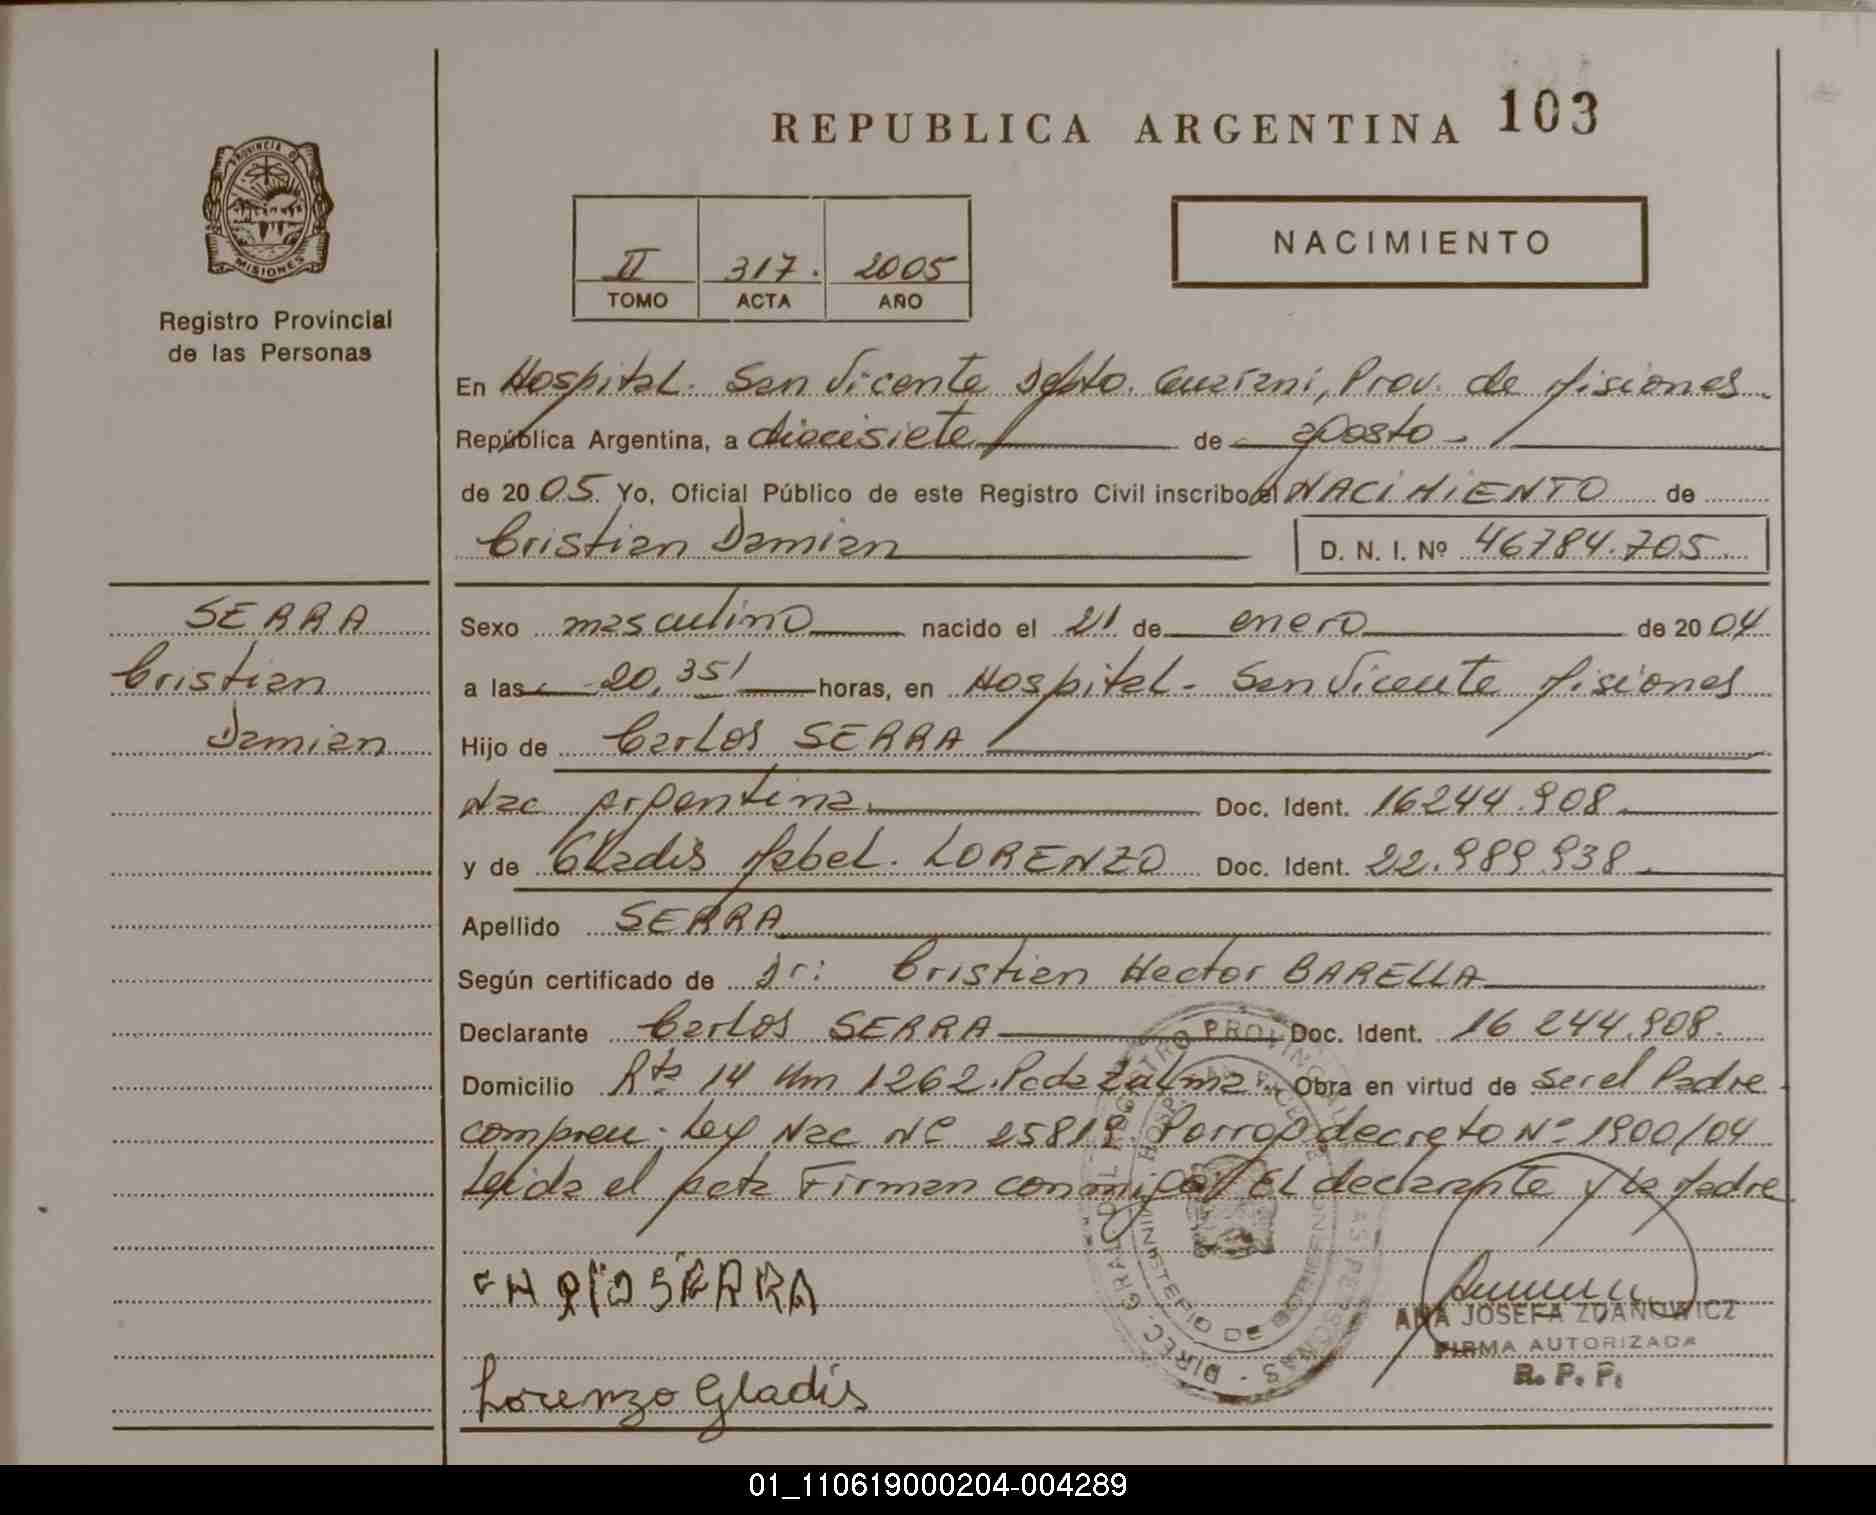 REPUBLICA ARGENTINA 103
PROVINCIA DE
MISIONES
Registro Provincial
de las Personas
II 317. 2005
TOMO ACTA AÑO
NACIMIENTO
En Hospital. San Vicente Depto. Guarani, Prov. de Misiones
República Argentina, a diecisiete de agosto
de 2005. Yo, Oficial Público de este Registro Civil inscribo el NACIMIENTO de
Cristian Damian D. N. I. Nº 46784.705
SERRA
Cristian
Damian
Sexo masculino nacido el 21 de enero de 2004
a las 20,35' horas, en Hospital - San Vicente Misiones
Hijo de Carlos SERRA
Nac Argentina. Doc. Ident. 16244.908
y de Gladis Mabel. LORENZO Doc. Ident. 22.989.938
Apellido SERRA
Según certificado de Dr: Cristian Hector BARELLA
Declarante Carlos SERRA Doc. Ident. 16 244.908.
Domicilio Rta 14 Km 1262. Pcda Zulma. Obra en virtud de ser el Padre
compren. Ley Nac Nº 25819. Porrogo decreto Nº 1900/04
Leida el Acta Firman conmigo El declarante y la Madre
SERRA
Lorenzo Gladis
DIREC. GRAL. DEL REGISTRO PROVINCIAL DE LAS PERSONAS
MINISTERIO DE GOBIERNO
ANA JOSEFA ZDANOWICZ
FIRMA AUTORIZADA
R. P. P.
01_110619000204-004289